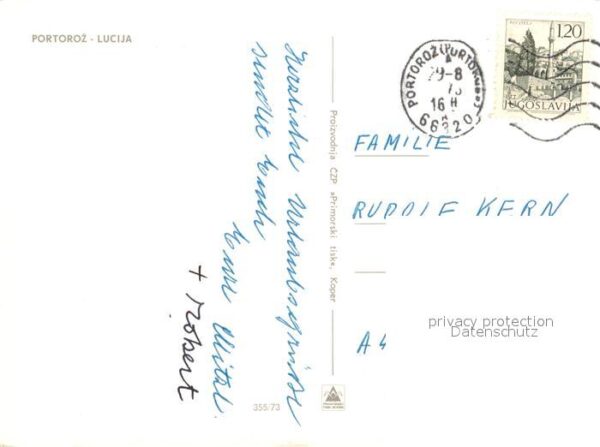 PORTOROŽ - LUCIJA
Herzliche Urlaubsgrüße
sendet Euch
Eure
+ Robert
355/73
Proizvodnja ČZP »Primorski tisk«, Koper
PORTOROŽ (PORTOROSE)
29-8
16 H
66320
1,20
JUGOSLAVIJA
FAMILIE
RUDOLF KERN
A4
privacy protection
Datenschutz